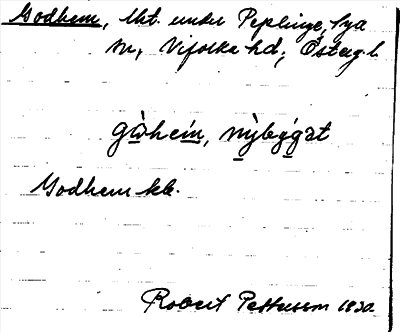 Godhem, lht. under Peplinge, Sya
sn, Vifolka hd, Östergl.
gòhem, nỳbýgət
Godhem kb.
Robert Pettersson 1930.